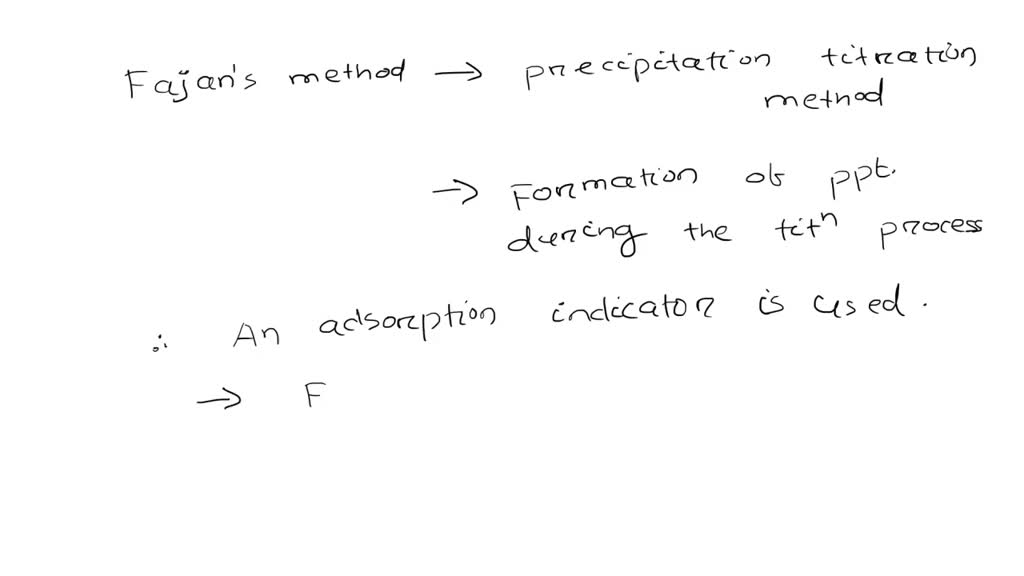 Fajan's method → precipitation titration
method
→ Formation of ppt.
during the titn process
∴ An adsorption indicator is used.
→ F